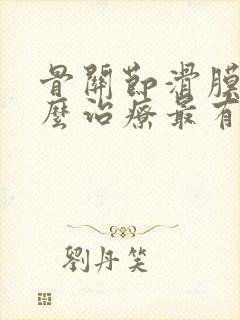 骨關節滑膜
麼治療最有
劉丹笑